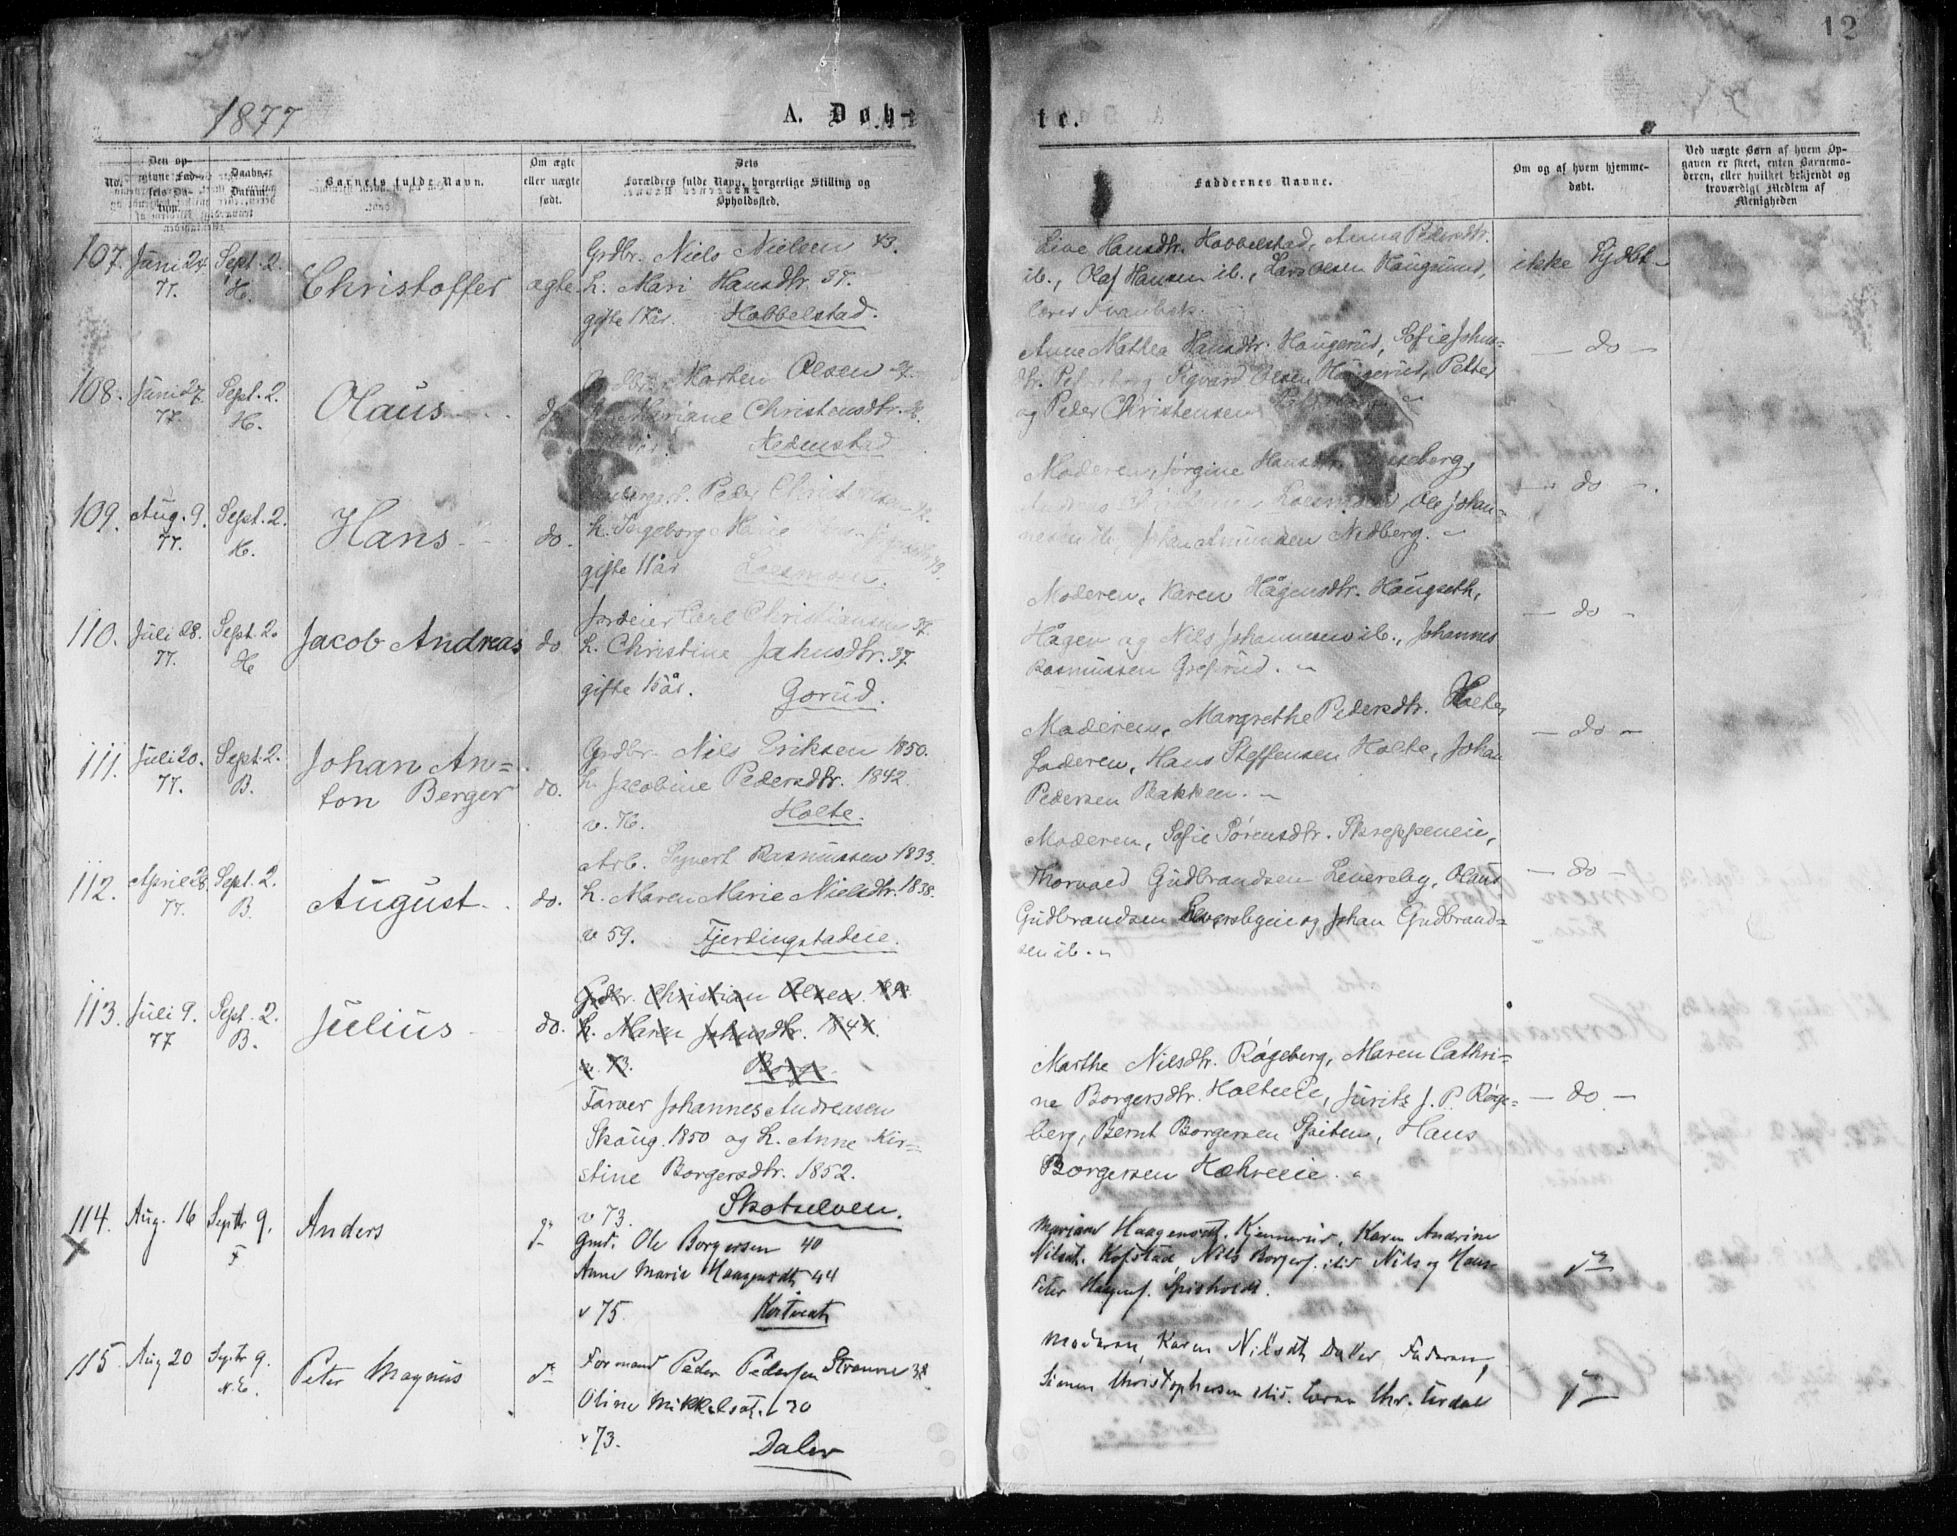 12
1877
A. Døb-
te.
No.
Den opgivne Fødsels Datum.
Daabens Datum
Barnets fulde Navn.
Om ægte eller uægte født.
Dets Forældres fulde Navn, borgerlige Stilling og Opholdssted.
Faddernes Navne.
Om og af hvem hjemmedøbt.
Ved uægte Børn af hvem Opgaven er skeet, enten Barnemoderen, eller hvilket bekjendt og troværdigt Medlem af Menigheden
107. Juni 24. 77. Sept. 2. H. Christoffer ægte
Grdbr. Niels Nielsen 43.
h. Mari Hansdtr. 37.
gifte 17 år. Hobbelstad.
Live Hansdtr. Hobbelstad, Anna Pedersdtr.
ib., Olaf Hansen ib., Lars Olsen Haugsund,
lærer
ikke hjdbt.
108. Juni 27. 77. Sept. 2. H. Olaus do
Morten Olsen
Mariane Christensdtr.
Nedenstad
Anne Mathea Hansdtr. Haugerud, Sofie Johns=
dtr. Sigvard Olsen Haugerud, Petter
og Peder Christensen
do
109. Aug. 9. 77. Sept. 2. H. Hans do.
Peder
h. Ingeborg Marie
gifte 11 år Loesmoen.
Moderen, Jørgine
Loesmoen, Ole Johan=
nesen ib, Johan Amundsen Nedberg.
do
110. Juli 28. 77. Sept. 2. H Jacob Andreas do
Jordeier Carl Christiansen 37.
h. Christine Jahnsdtr. 37
gifte 15 år. Gorud.
Moderen, Karen Hågensdtr. Haugseth,
Hågen og Nils Johannesen ib., Johannes
Rasmussen Grefsrud.
do
111. Juli 20. 77. Sept. 2. B. Johan An=
ton Berger do.
Grdbr. Nils Eriksen 1850.
h. Jacobine Pedersdtr. 1842
v. 76. Holte.
Moderen, Margrethe Pedersdtr. Holte,
Faderen, Hans Steffensen Holte, Johan
Pedersen Bakken.
do
112. April 28. 77. Sept. 2. B. August do.
Arb. Syvert Rasmussen 1833.
h. Maren Marie Nielsdtr. 1838.
v 59. Fjerdingstadeie.
Moderen, Sofie Sørensdtr. Skreppeneie,
Thorvald Gudbrandsen Leversby, Olaus
Gudbrandsen Leversbyeie og Johan Gudbrand=
sen ib.
do
113. Juli 9. 77 Sept. 2. B. Julius do.
Grdbr. Christian Olsen
h. Maren Johnsdtr. 1844.
v. 73.
Farver Johannes Andreasen
Skaug. 1850 og h. Anne Kir=
stine Borgersdtr. 1852.
v 73. Skotselven.
Marthe Nilsdtr. Røgeberg, Maren Cathri=
ne Borgersdtr. Holteeie, Jurits J. P. Røge=
berg, Bernt Borgersen Spiten, Hans
Borgersen Hæhreeie.
do
114. Aug. 16 Septr 9. F Anders
Gmd. Ole Borgersen 40
Anne Marie Haagensdt 44
v 75.
Mariane Haagensdt. Kjennerud, Karen Andrine
Nilsdt. Kofstad, Nils Borgers. ibid Nils og Hans
Peter Haagens. Spisholdt.
115. Aug 20 Septr 9. N.E. Peter Magnus
Formand Peder Pedersen Strømne 38
Oline Mikkelsdt. 30
v 73. Daler
Moderen, Karen Nilsdt Daler, Faderen,
Simen Christophersen ibid. Lærer Chr. Urdal